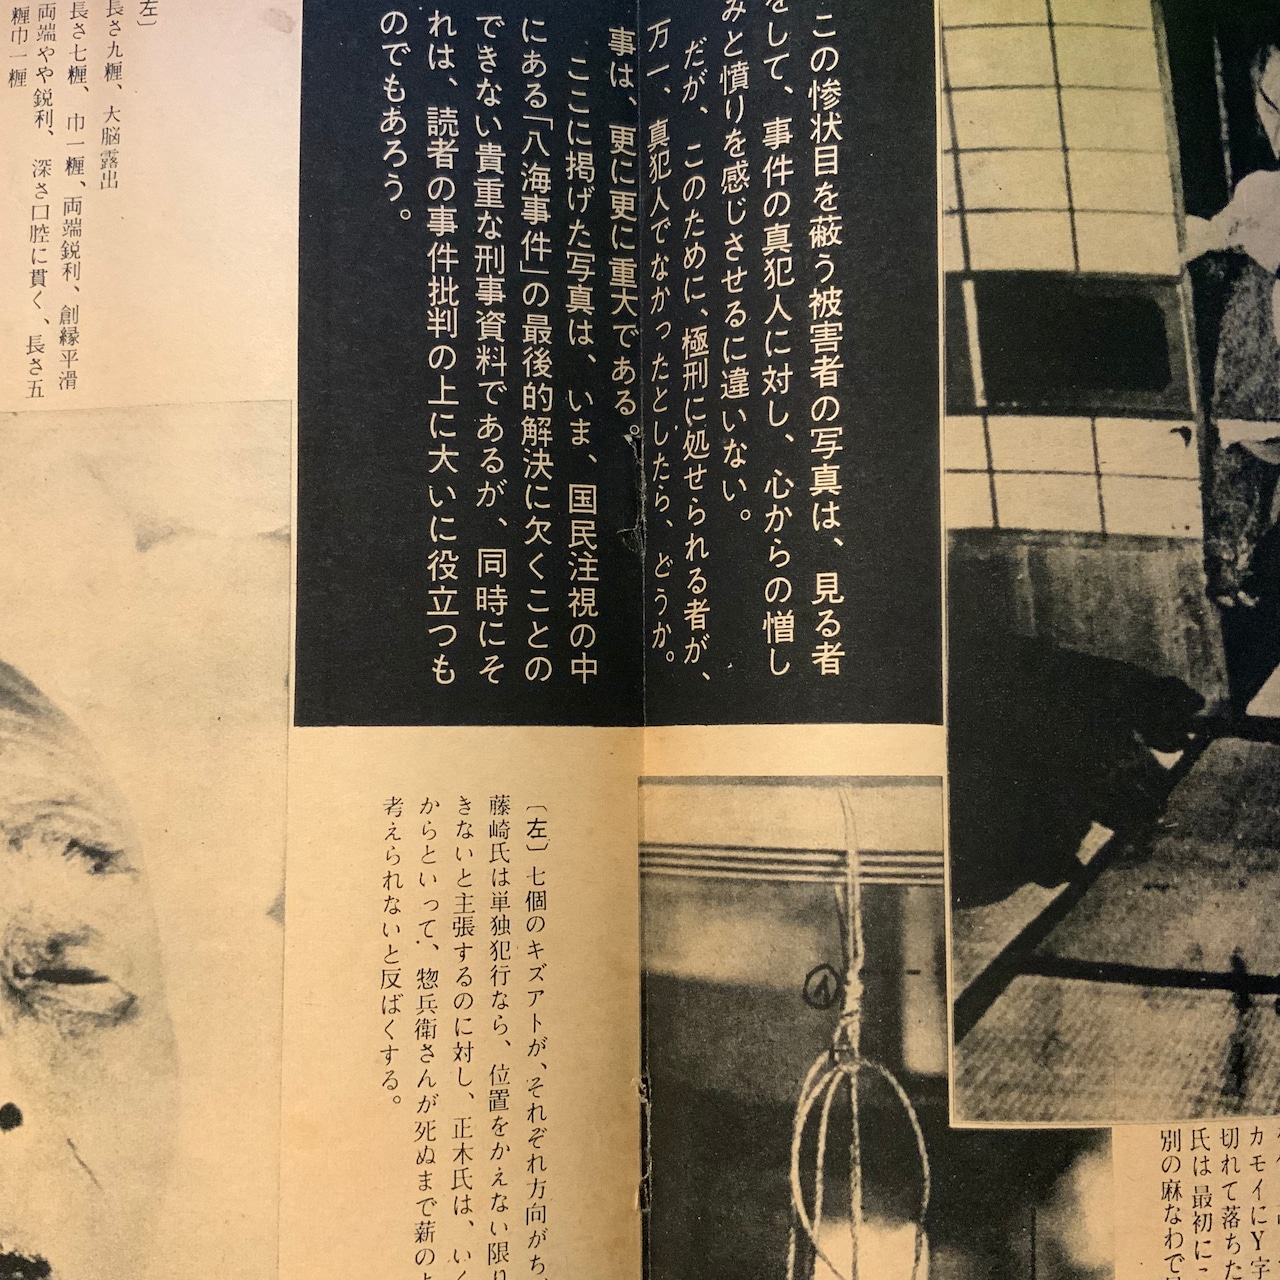 この惨状目を蔽う被害者の写真は、見る者
をして、事件の真犯人に対し、心からの憎し
みと憤りを感じさせるに違いない。
だが、このために、極刑に処せられる者が、
万一、真犯人でなかったとしたら、どうか。
事は、更に更に重大である。
ここに掲げた写真は、いま、国民注視の中
にある「八海事件」の最後的解決に欠くことの
できない貴重な刑事資料であるが、同時にそ
れは、読者の事件批判の上に大いに役立つも
のでもあろう。
カモイにY字
切れて落ちた
氏は最初に
別の麻なわで
1
〔左〕七個のキズアトが、それぞれ方向がち、
藤崎氏は単独犯行なら、位置をかえない限り
きないと主張するのに対し、正木氏は、いく
からといって、惣兵衛さんが死ぬまで薪の
考えられないと反ばくする。
左〕
長さ九糎、大脳露出
長さ七糎、巾一糎、両端鋭利、創縁平滑
両端やや鋭利、深さ口腔に貫く、長さ五
糎巾一糎